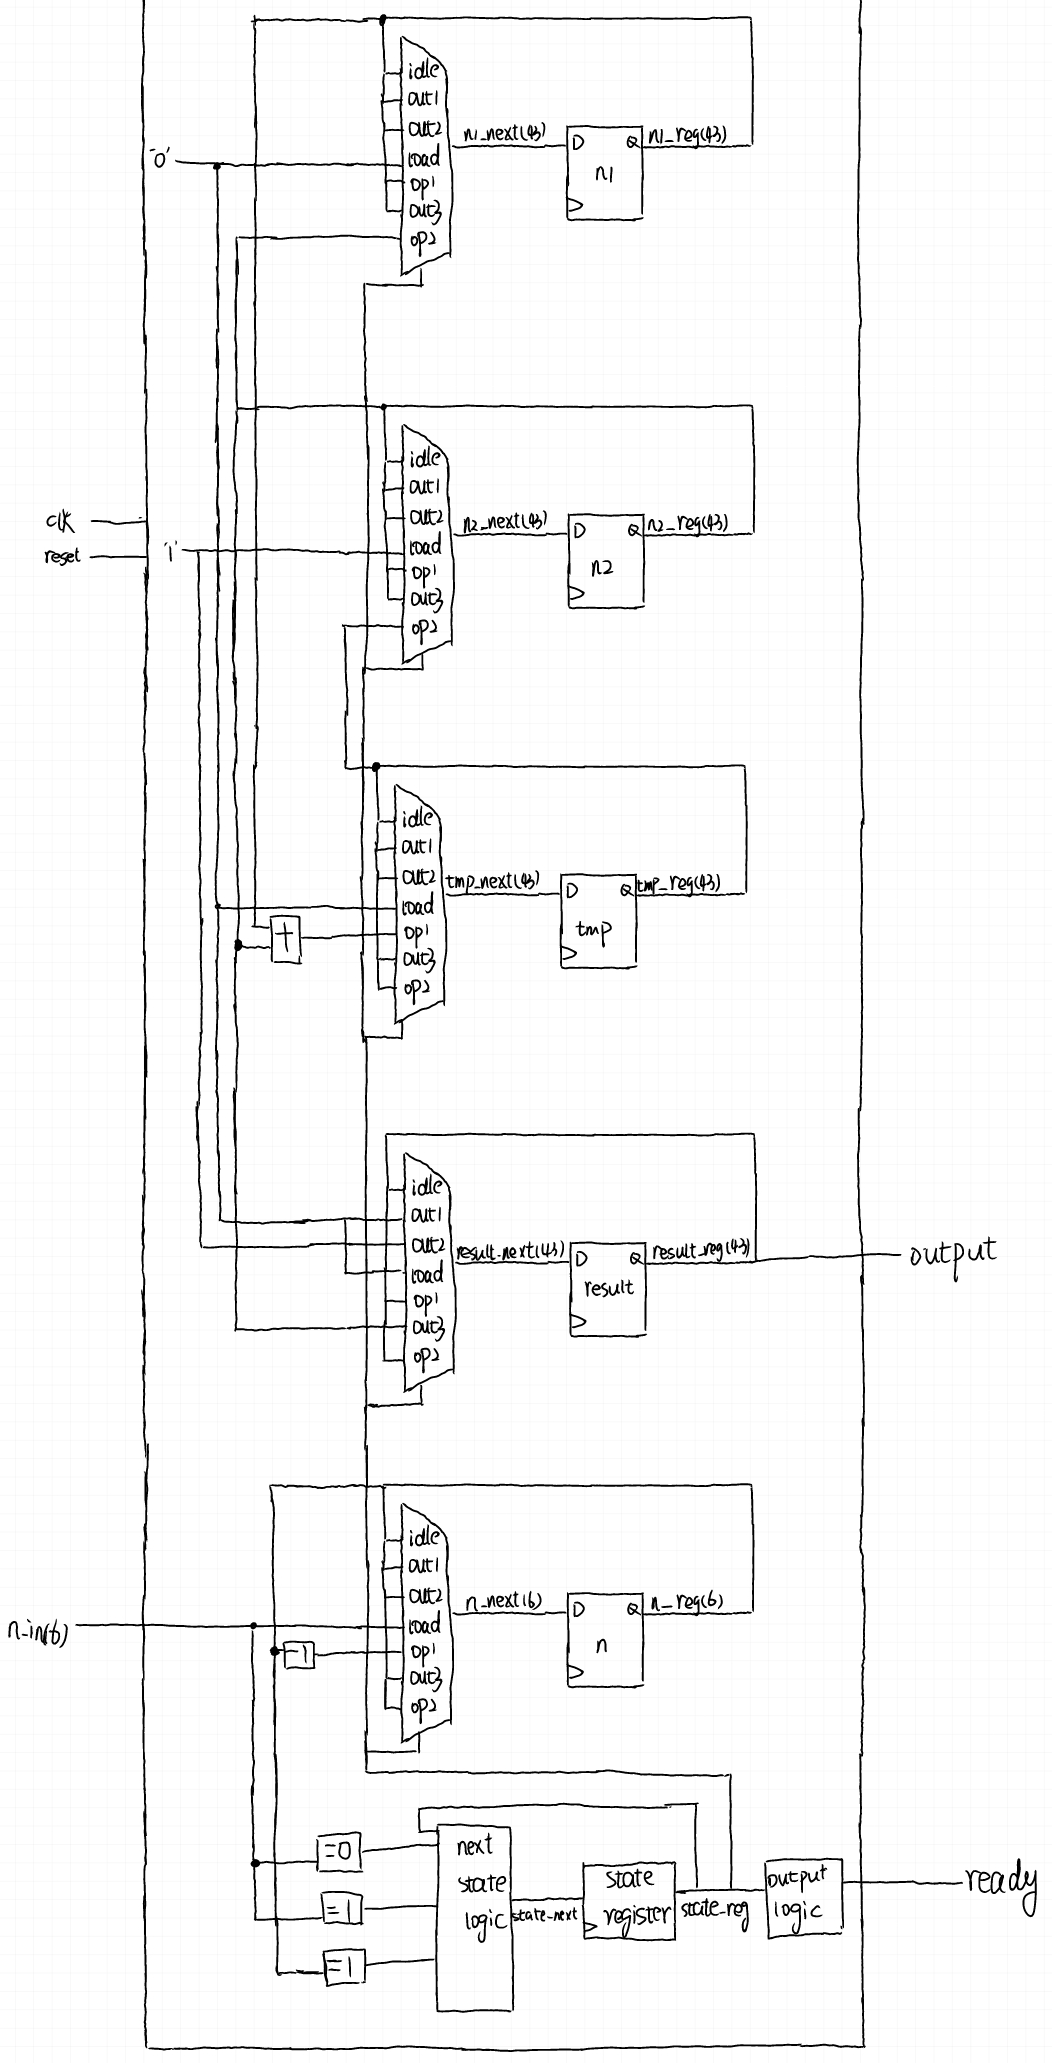 idle
out1
out2
load
op1
out3
op2
'0'
n1_next(43)
D Q
n1
n1_reg(43)
clk
reset
'1'
idle
out1
out2
load
op1
out3
op2
n2_next(43)
D Q
n2
n2_reg(43)
idle
out1
out2
load
op1
out3
op2
+
tmp_next(43)
D Q
tmp
tmp_reg(43)
idle
out1
out2
load
op1
out3
op2
result_next(43)
D Q
result
result_reg(43)
output
idle
out1
out2
load
op1
out3
op2
n_in(6)
-1
n_next(6)
D Q
n
n_reg(6)
=0
=1
=1
next
state
logic
state_next
state
register
state_reg
output
logic
ready